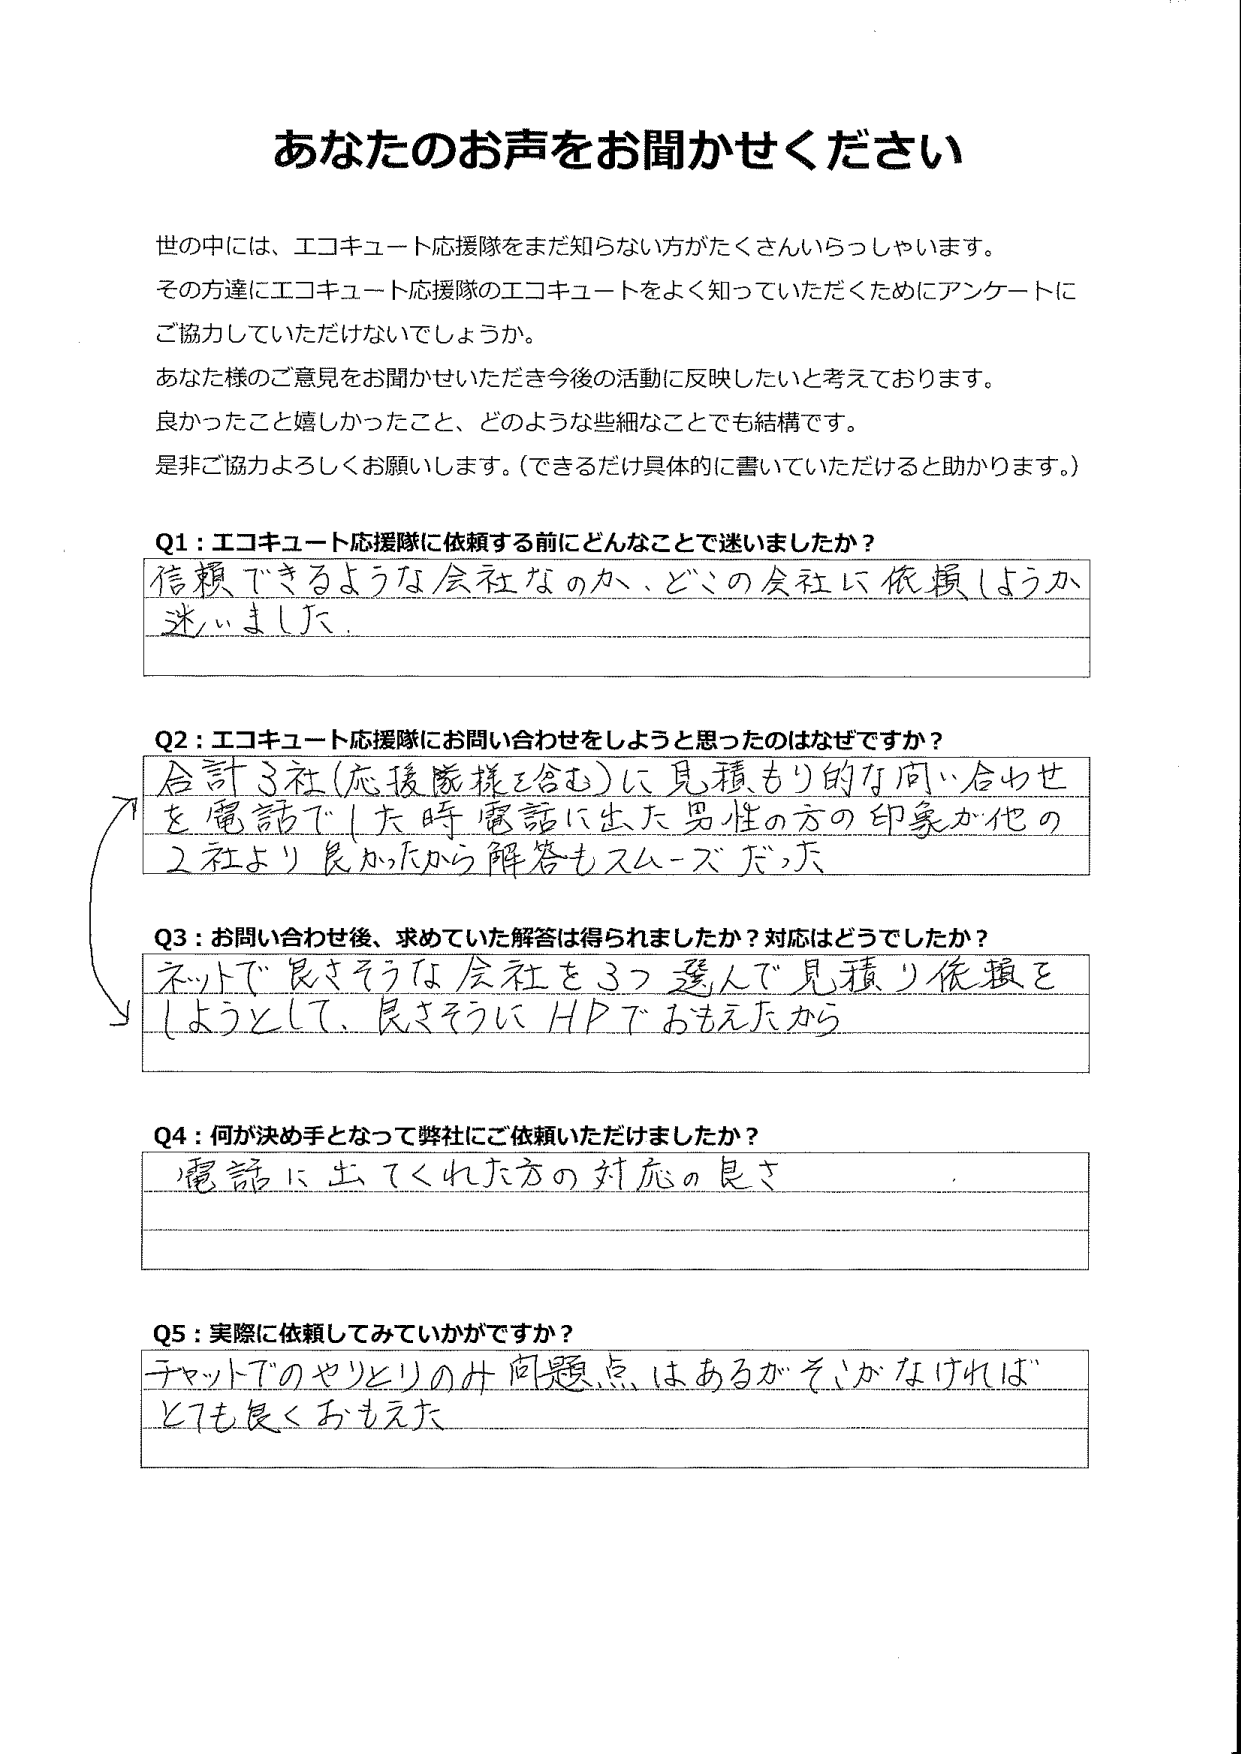 あなたのお声をお聞かせください
世の中には、エコキュート応援隊をまだ知らない方がたくさんいらっしゃいます。
その方達にエコキュート応援隊のエコキュートをよく知っていただくためにアンケートに
ご協力していただけないでしょうか。
あなた様のご意見をお聞かせいただき今後の活動に反映したいと考えております。
良かったこと嬉しかったこと、どのような些細なことでも結構です。
是非ご協力よろしくお願いします。(できるだけ具体的に書いていただけると助かります。)
Q1:エコキュート応援隊に依頼する前にどんなことで迷いましたか?
信頼できるような会社なのか、どこの会社に依頼しようか
迷いました.
Q2:エコキュート応援隊にお問い合わせをしようと思ったのはなぜですか?
合計3社(応援隊様を含む)に見積もり的な問い合わせ
を電話でした時電話に出た男性の方の印象が他の
2社より良かったから解答もスムーズだった
Q3:お問い合わせ後、求めていた解答は得られましたか?対応はどうでしたか?
ネットで良さそうな会社を3つ選んで見積り依頼を
しようとして、良さそうにHPでおもえたから
Q4:何が決め手となって弊社にご依頼いただけましたか?
電話に出てくれた方の対応の良さ
Q5:実際に依頼してみていかがですか?
チャットでのやりとりのみ問題点はあるがそこがなければ
とても良くおもえた